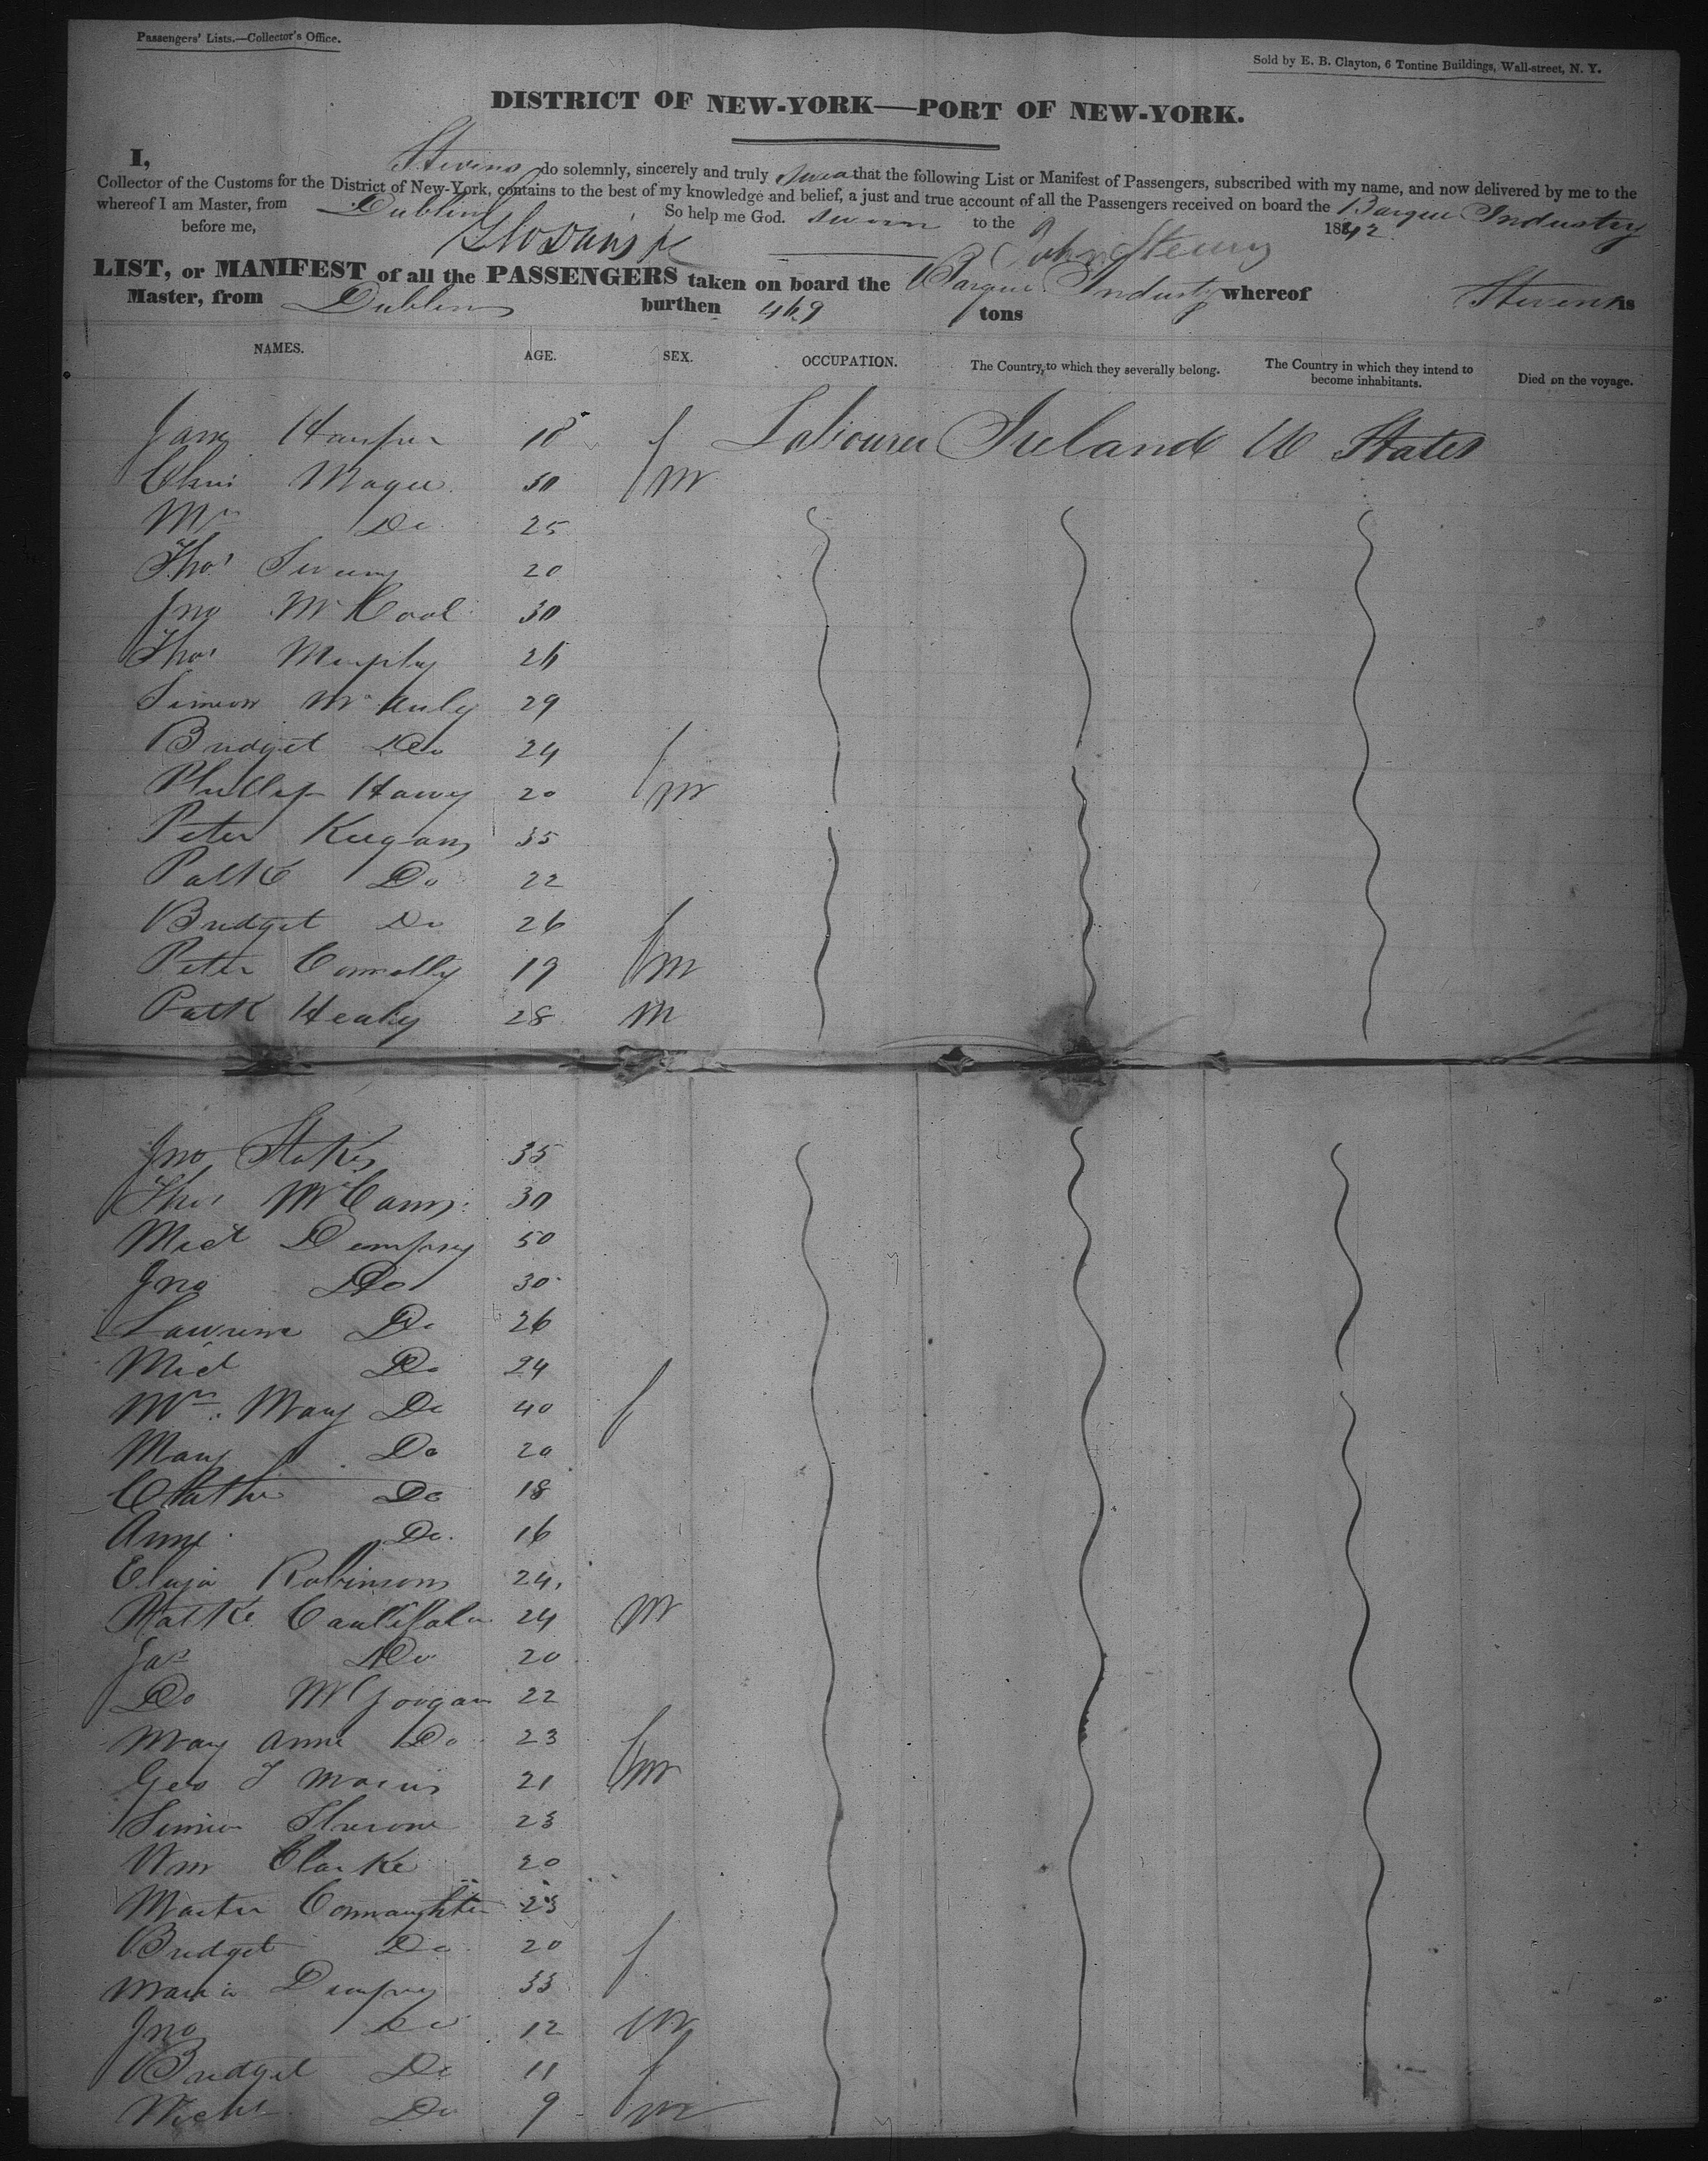 Passengers' Lists.—Collector's Office.
Sold by E. B. Clayton, 6 Tontine Buildings, Wall-street, N. Y.
DISTRICT OF NEW-YORK—PORT OF NEW-YORK.
I, Stevens do solemnly, sincerely and truly that the following List or Manifest of Passengers, subscribed with my name, and now delivered by me to the
Collector of the Customs for the District of New-York, contains to the best of my knowledge and belief, a just and true account of all the Passengers received on board the Barque Industry
whereof I am Master, from Dublin So help me God. sworn to the 1842
before me,
LIST, or MANIFEST of all the PASSENGERS taken on board the Barque Industry whereof Stevens is
Master, from Dublin burthen 469 tons
NAMES. AGE. SEX. OCCUPATION. The Country to which they severally belong. The Country in which they intend to become inhabitants. Died on the voyage.
Jane 18 f Labourer Ireland U States
Magee 30 m
Mrs Do 25
Thos 20
Jno McCool 30
Thos Murphy 26
Simeon McAuly 29
Bridget Do 24 f
Phillip 20 m
Peter Keegan 35
Patk Do 22
Bridget Do 26 f
Peter Connolly 19 m
Patk Healy 28 m
Jno Stokes 35
Thos McCann 30
Micl Dempsey 50
Jno Do 30
Lawrence Do 26
Micl Do 24
Mrs. Mary Do 40 f
Mary Do 20
Do 18
Anne Do 16
Eliza Robinson 24
Patk 24 m
Jas Do 20
Do 22
Mary Anne Do 23 f
Geo 21 m
23
Wm Clarke 20
Martin Connaughton 23
Bridget Do 20 f
Maria Dempsey 33
Jno Do 12 m
Bridget Do 11 f
Do 9 m